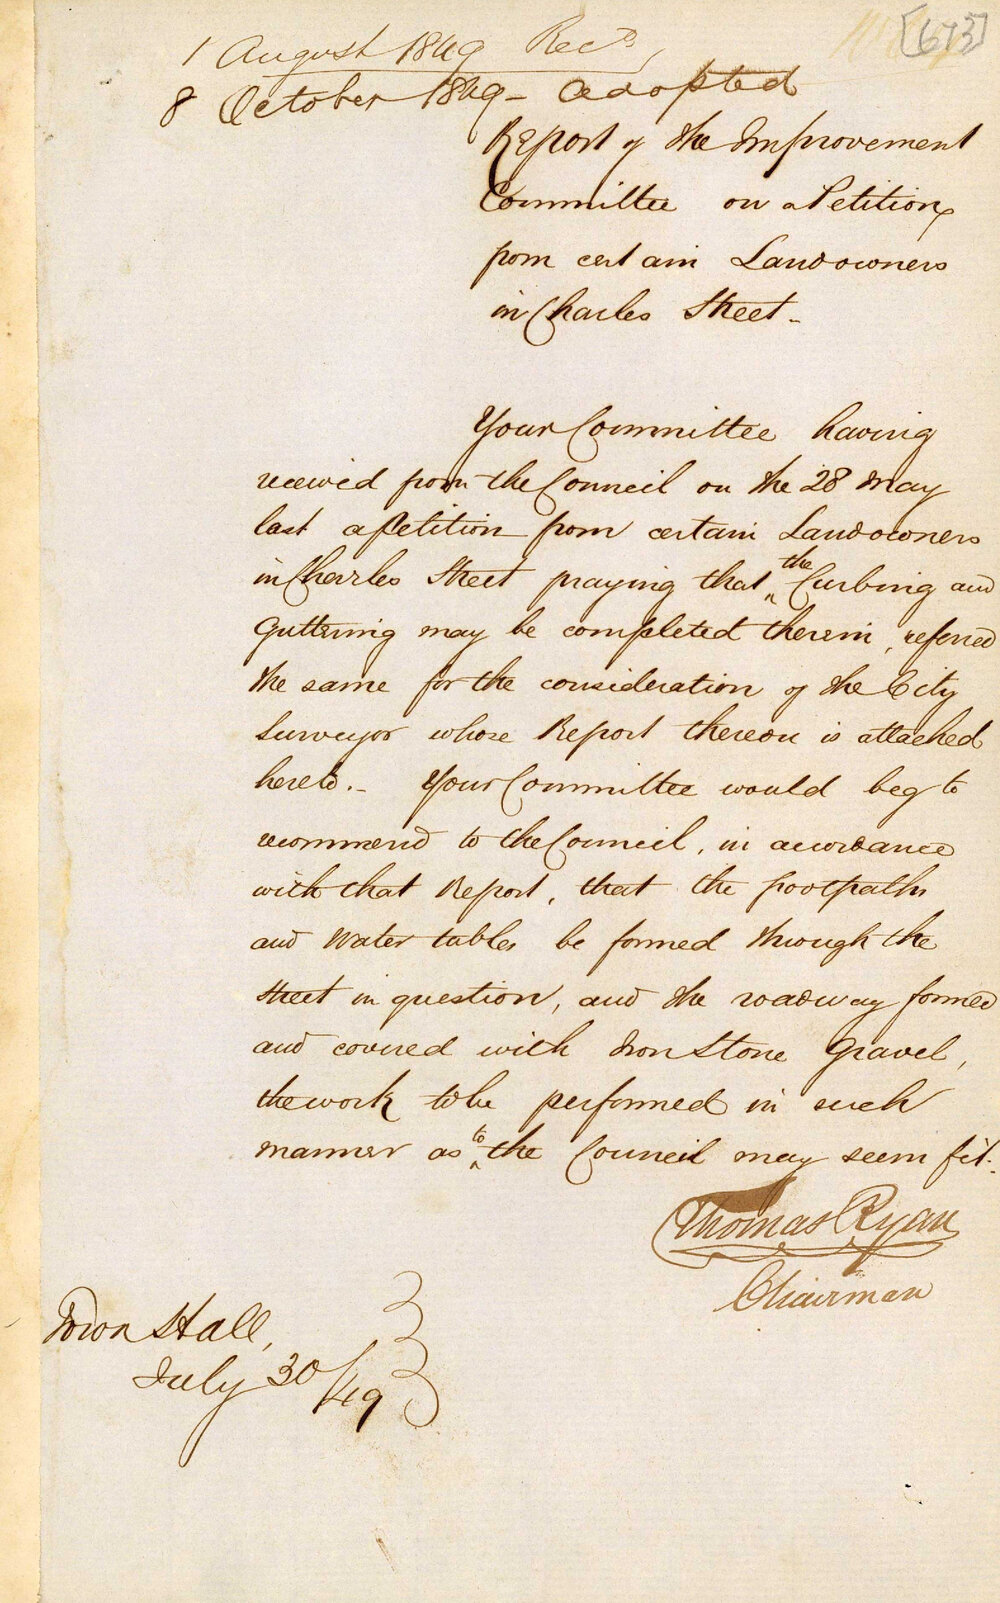 [673]
1 August 1849 Recd,
8 October 1849 - adopted
Report of the Improvement
Committee on a Petition
from certain Landowners
in Charles Street -
Your Committee having
received from the Council on the 28 May
last a Petition from certain Landowners
in Charles Street praying that the Curbing and
Guttering may be completed therein, referred
the same for the consideration of the City
Surveyor whose Report thereon is attached
hereto. - Your Committee would beg to
recommend to the Council, in accordance
with that Report, that the footpaths
and Water tables be formed through the
Street in question, and the roadway formed
and covered with Iron Stone Gravel,
the work to be performed in such
manner as to the Council may seem fit.
Thomas Ryan
Chairman
Town Hall,
July 30/49